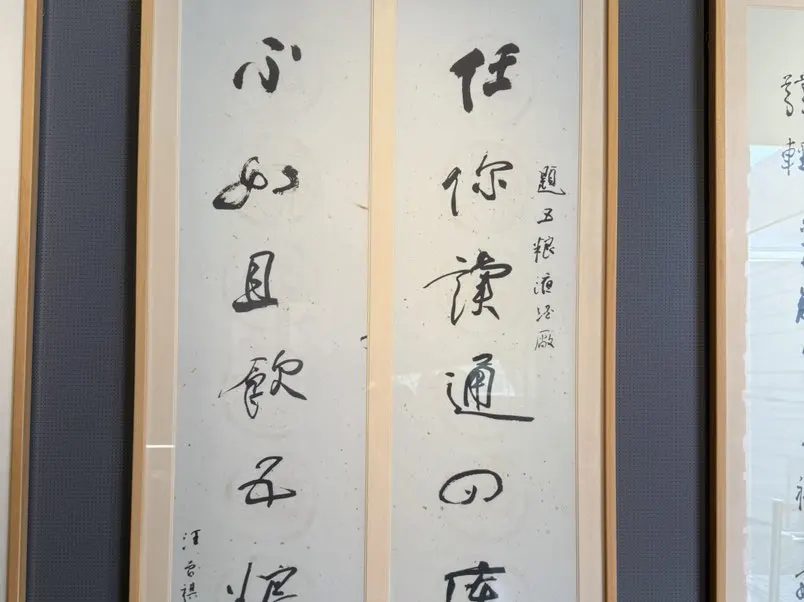 輕
題五粮液酒廠
任你讀通四庫
不如且飲五糧
汪曾祺